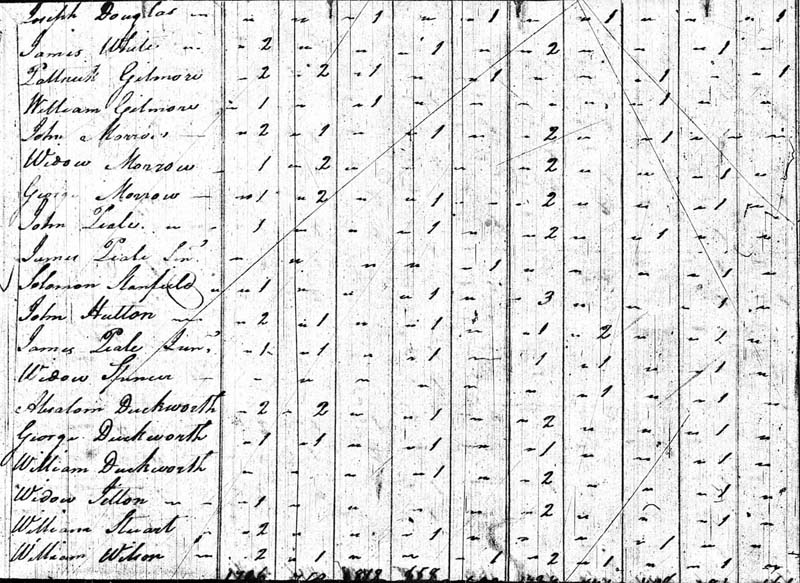 Joseph Douglas 1 1 1 1
James White 2 1 2 1
Patrick Gilmore 2 2 1 1 1 1
William Gilmore 1 1 1
John Morrow 2 1 1 2 1
Widow Morrow 1 2 2 1
George Morrow 1 2 1 2 1
John Peale 1 1 2 1
James Peale Senr 1 1
Solomon Stanfield 1 1 3 1
John Hutton 2 1 1 1 2 1
James Peale Junr 1 1 1 1 1 1
Widow Spencer 1 1
Absalom Duckworth 2 2 1 2 1
George Duckworth 1 1 1 1 1
William Duckworth 1 2 1
Widow 1 2 1
William Stuart 2 1 1
William Wilson 2 1 1 2 1 1